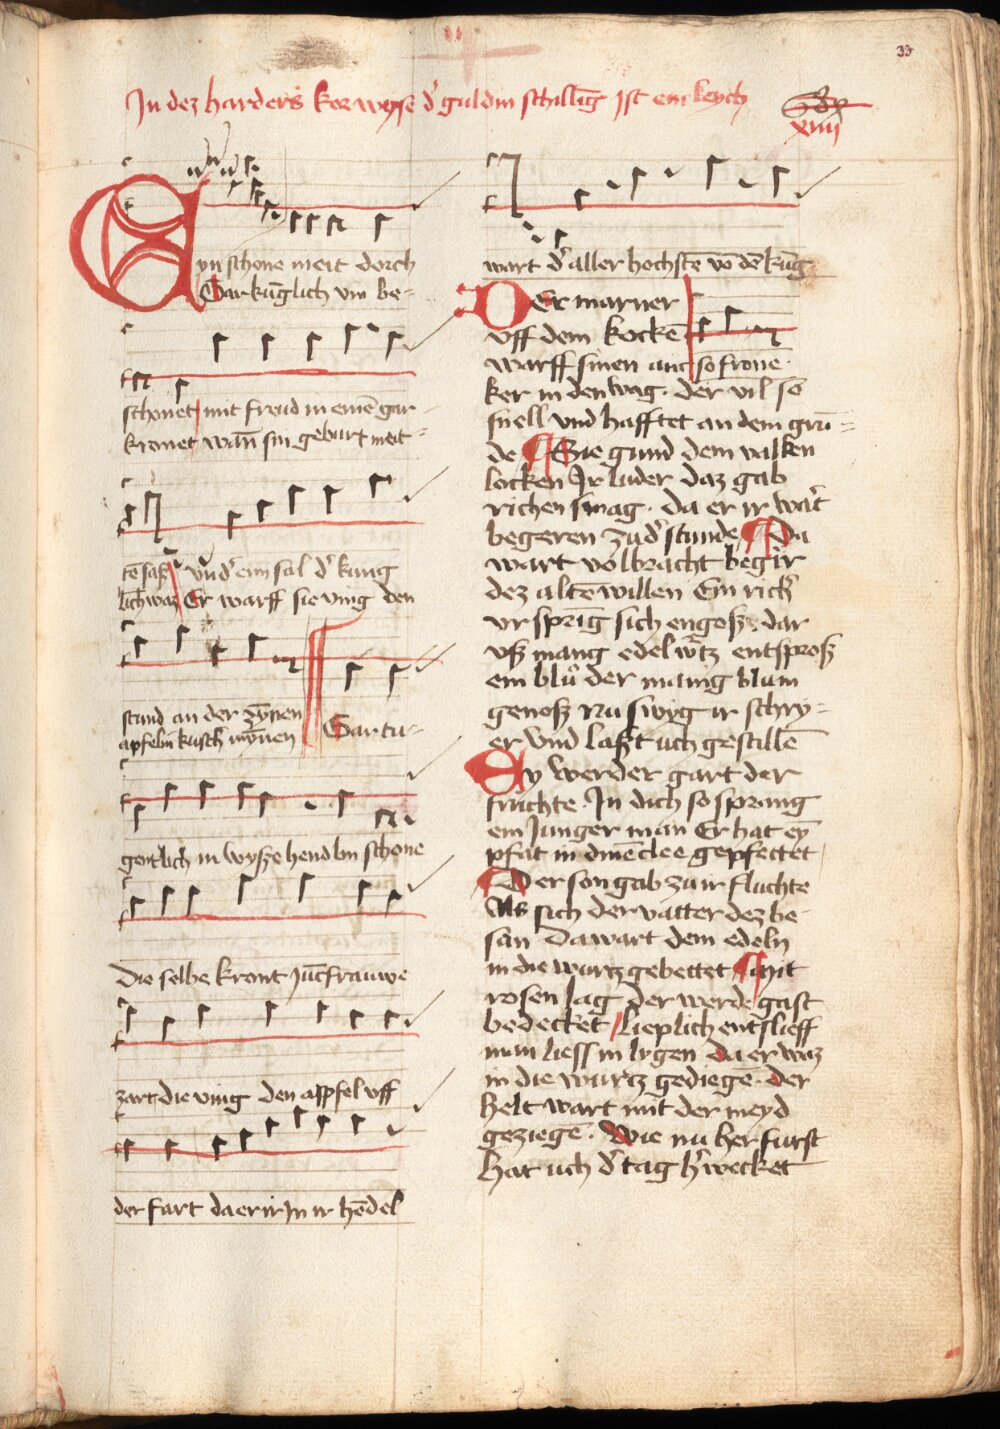 33
In dez harders korwyse d' guldin schillīg Ist ein keych
xiiii
Eyn schone meit dorch
Gar kūglich vm be-
schonet mit freud in einē gar
kronet wān sin geburt meit
tē saß vnd' eim sal d' kung
lich waz Er warff sie ving den
stund an der zȳnen
apfeln kusch mȳnen Gar tu-
gentlich in wysze hendlin schone
Die selbe kront Jūcfrauwe
zart die ving den appfel vff
der fart da er ir In ir hēdel
wart d' aller hochstē vō dē kūg
Der marner
vff dem kockē
warff sinen anc so frone
ker in den wag. der vil so
snell vnd hafftet an dem grū-
de Sie gund dem valken
locken Ir luder daz gab
richen smag. da er ir wart
begeren zu d' stunde Da
wart volbracht begir
dez altē willen Ein rich'
vrsprīg sich engosz. dar
vsz mang edel wtz entsprosz
ein blů der maing blum
genosz Nu swyg ir schry-
er vnd laszt uch gestillē
Ey werder gart der
fruchte. In dich so sprang
ein Junger man Er hat eȳ
pfat in dinē clee gepfettet
Der son gab zu ir fluchte
Als sich der vatter dez be-
san Da wart dem edeln
in die wurtz gebettet mit
rosen lag der werde gast
bedecket lieplich entslieff
man liess in lygen da er waz
in die wurtz gediegē. der
helt wart mit der meyd
geziegē. Wie nu her furst
hat uch d' tag h'wecket